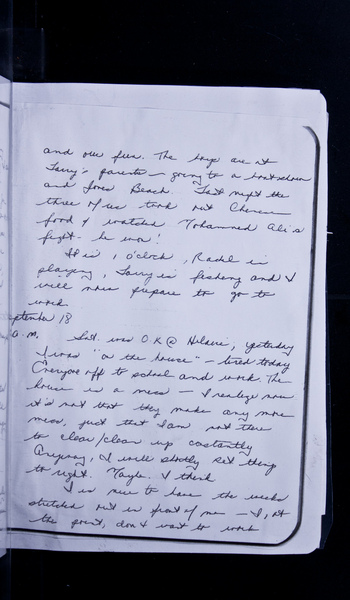 and our fun. The boys are at
Larry's parents — going to a boat show
and Jones Beach. Last night the
three of us took out Chinese
food & watched Mohammed Ali's
fight - he won!
It is 1 o'clock, Rachel is
playing, Larry is fishing and I
will now prepare to go to
work.
ptember 18
a.m. Sat. was O.K @ yesterday
I was "on the house" — tired today
Everyone off to school and work. The
house is a mess — I realize now
it's not that they make any more
mess, just that I am not there
to clear/clean up constantly
Anyway, I will shortly set things
to right. Maybe. I think
I is nice to have the week
stretched out in front of me — I, at
the point, don't want to work